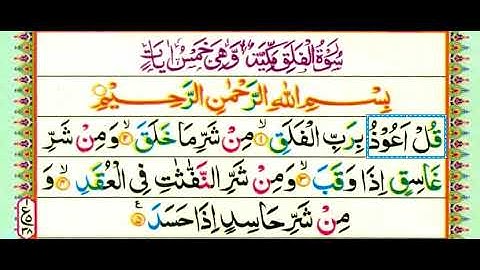 سُوْرَةُ الْفَلَقِ مَكِّيَّةٌ وَّهِىَ خَمْسُ اٰيَاتٍ
بِسْمِ اللهِ الرَّحْمٰنِ الرَّحِيْمِ
قُلْ اَعُوْذُ بِرَبِّ الْفَلَقِ ۙ‏﴿۱﴾ مِنْ شَرِّ مَا خَلَقَ ۙ‏﴿۲﴾ وَمِنْ شَرِّ
غَاسِقٍ اِذَا وَقَبَ ۙ‏﴿۳﴾ وَمِنْ شَرِّ النَّفّٰثٰتِ فِى الْعُقَدِ ۙ‏﴿۴﴾ وَ
مِنْ شَرِّ حَاسِدٍ اِذَا حَسَدَ ﴿۵﴾